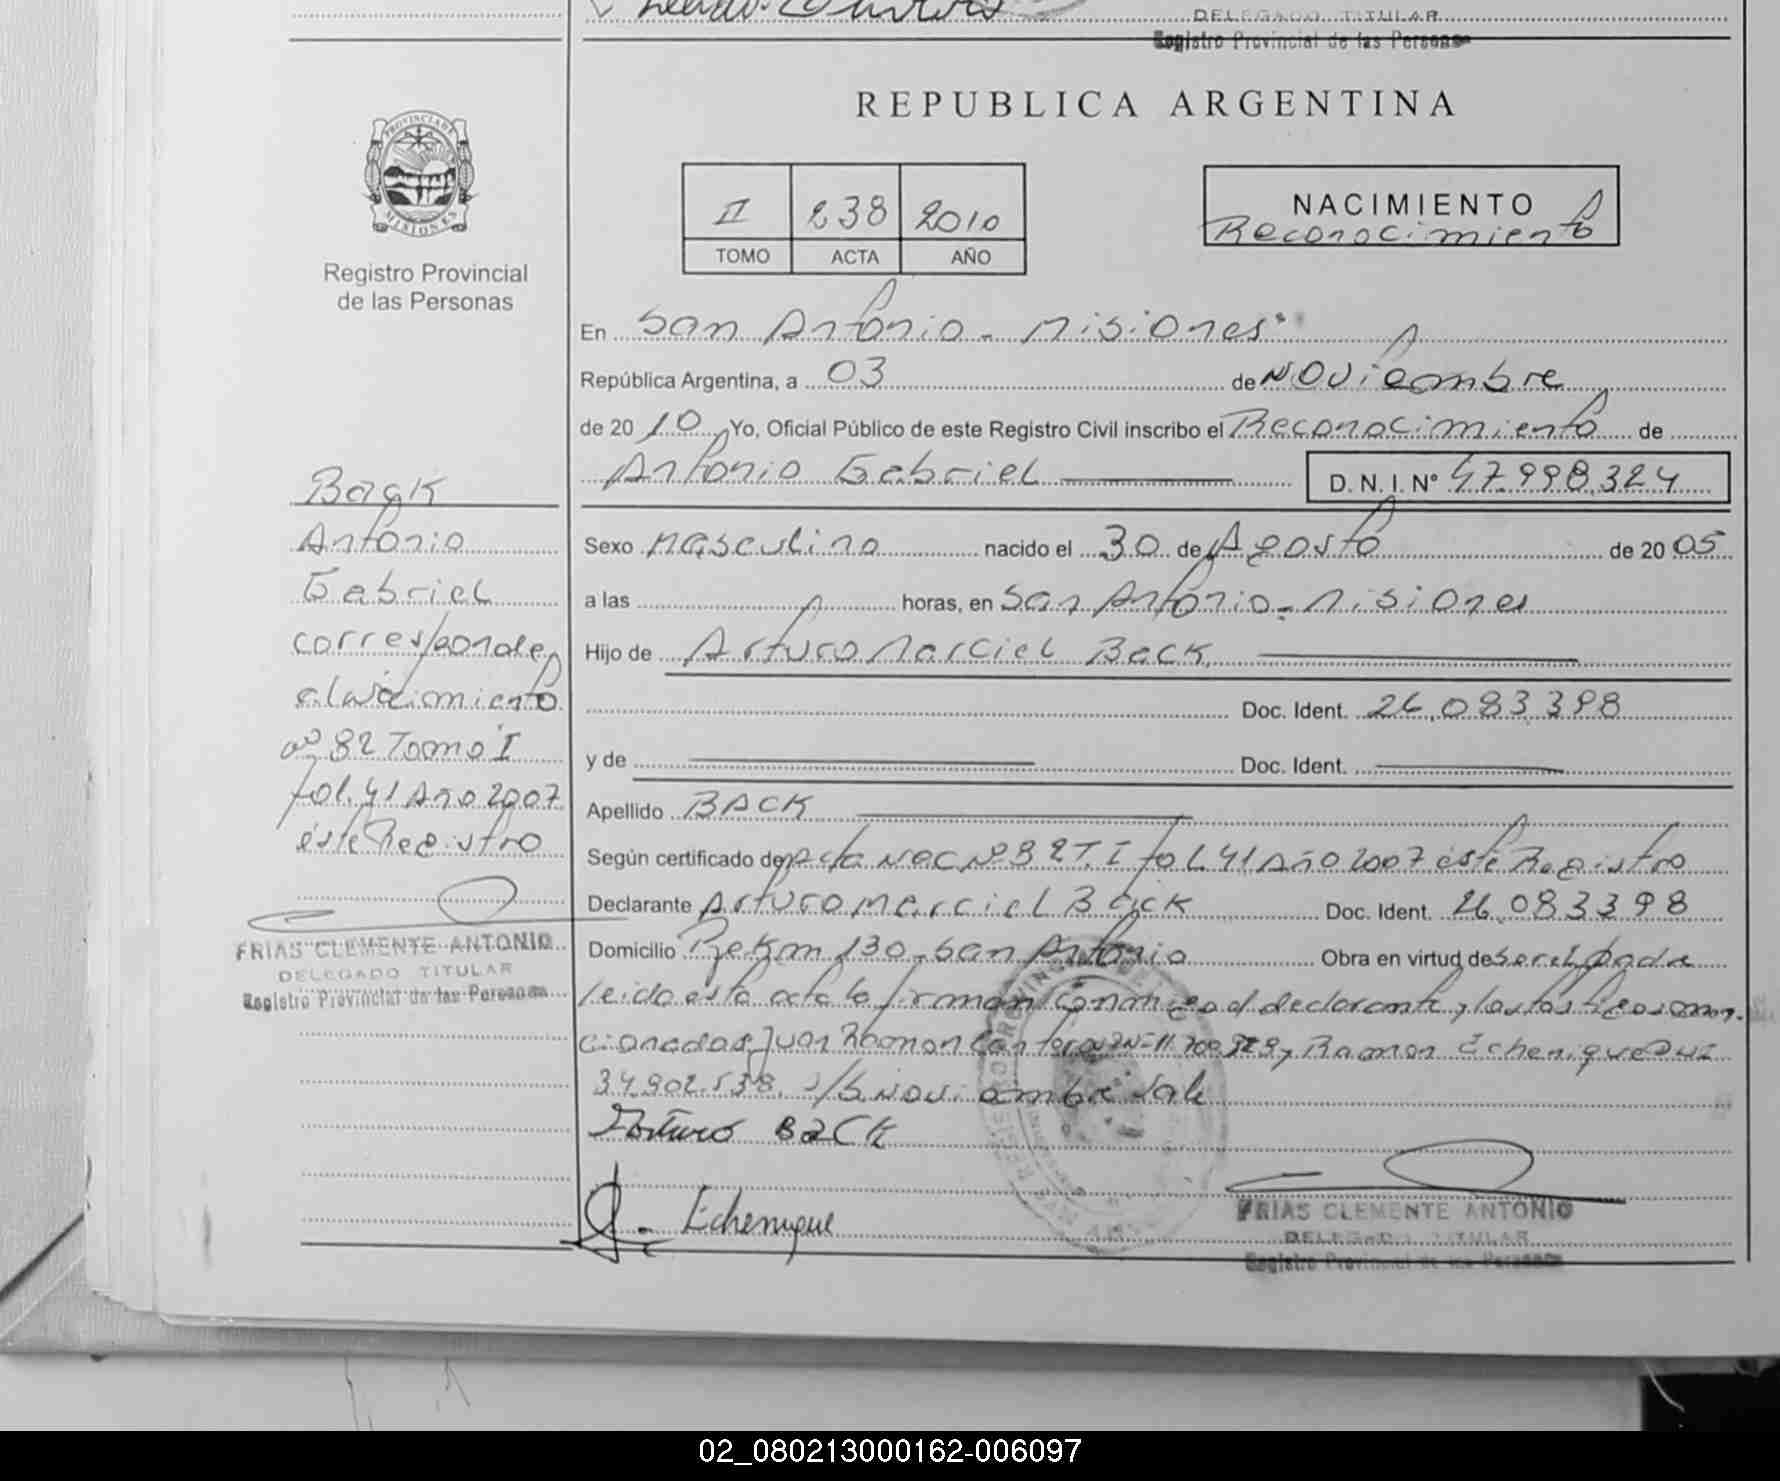 DELEGADO TITULAR
Registro Provincial de las Personas
REPUBLICA ARGENTINA
PROVINCIA DE
MISIONES
Registro Provincial
de las Personas
II 238 2010
TOMO ACTA AÑO
NACIMIENTO
Reconocimiento
En San Antonio - Misiones
República Argentina, a 03 de Noviembre
de 20 10 Yo, Oficial Público de este Registro Civil inscribo el Reconocimiento de
Antonio Gabriel D.N.I. N° 47.998.324
Sexo Masculino nacido el 30 de Agosto de 20 05
a las horas, en San Antonio - Misiones
Hijo de Arturo Marciel Back
Doc. Ident. 26.083.398
y de Doc. Ident.
Apellido BACK
Según certificado de Acta Nac Nº 82 T. I fol. 41 Año 2007 este Registro
Declarante Arturo Marciel Back Doc. Ident. 26.083398
Domicilio Km 130 - San Antonio Obra en virtud de ser el padre
leido esta acta la firman conmigo el declarante y los testigos men
cionados Juan Ramon Ramon Echenique DNI
34.902.538. s/b Noviembre Vale
Arturo Back
Echenique
FRIAS CLEMENTE ANTONIO
DELEGADO TITULAR
Registro Provincial de las Personas
Back
Antonio
Gabriel
corresponde
al Nacimiento
nº 82 Tomo I
fol. 41 Año 2007
este Registro
FRIAS CLEMENTE ANTONIO
DELEGADO TITULAR
Registro Provincial de las Personas
02_080213000162-006097